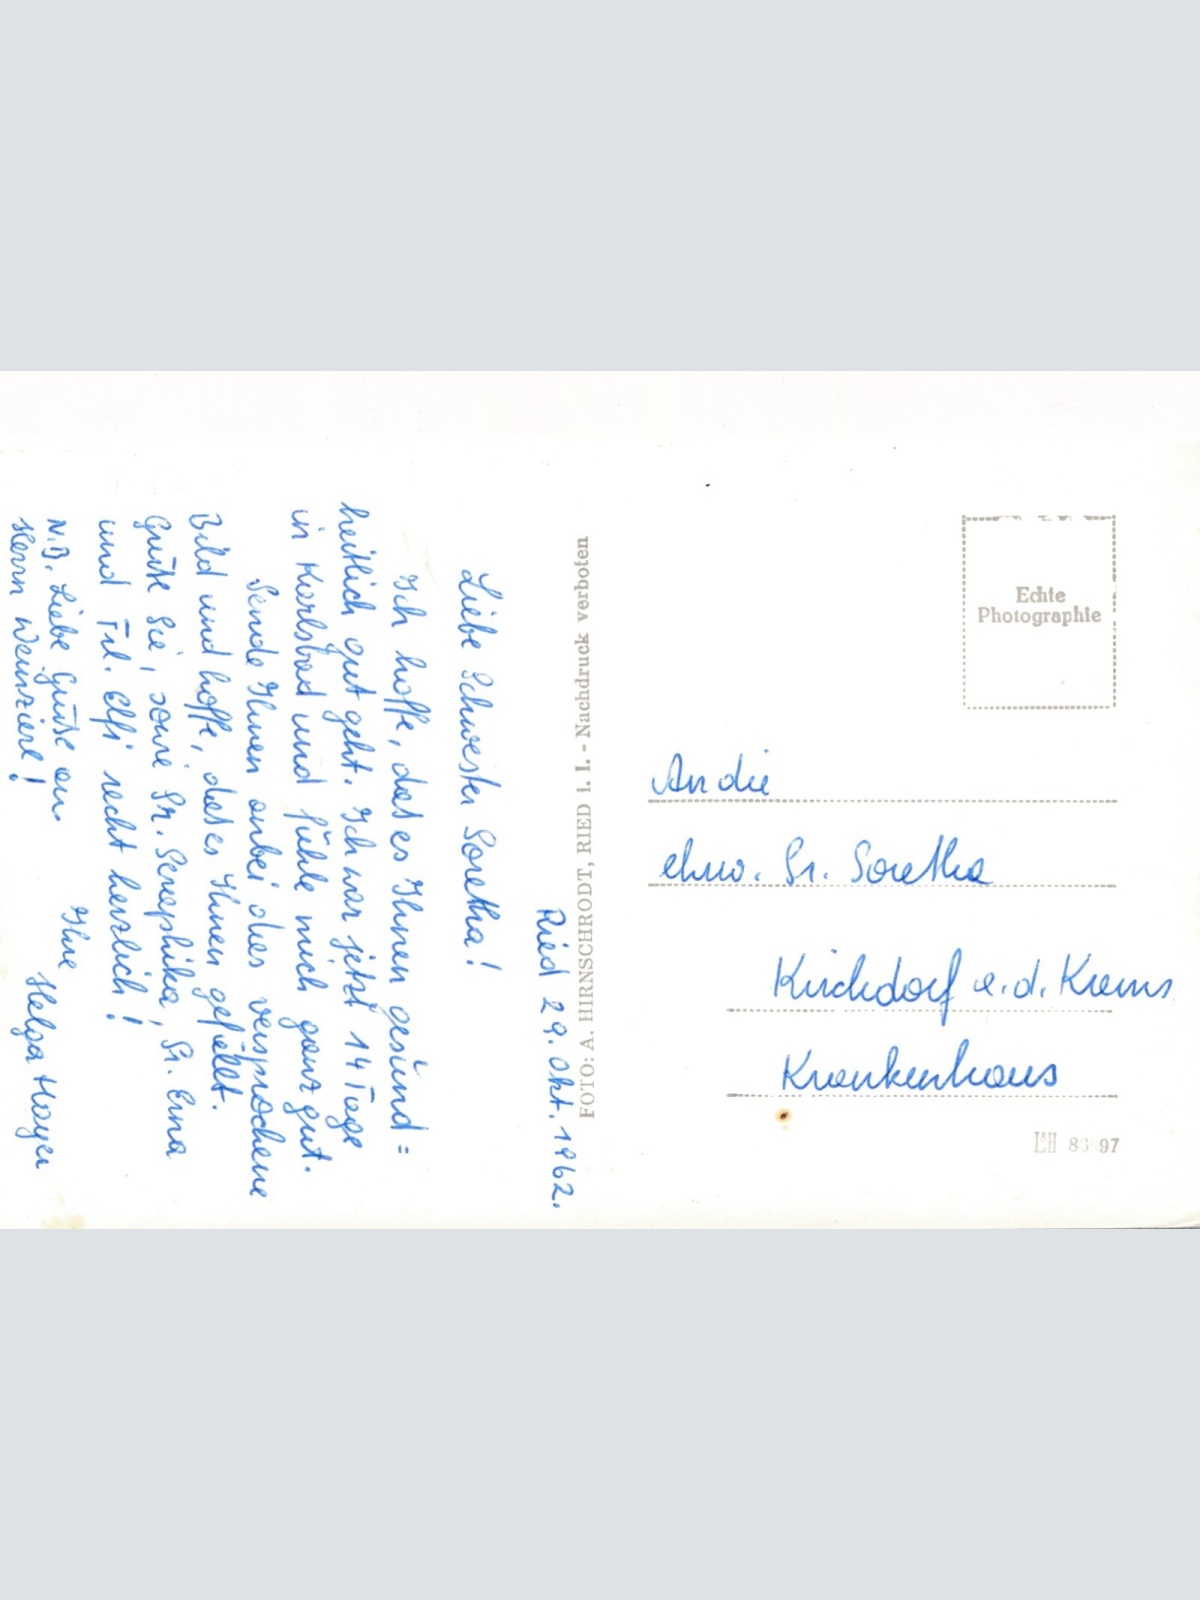 Ried 29. Okt. 1962.
Liebe Schwester Soretha!
Ich hoffe, dass es Ihnen gesund=
heitlich gut geht. Ich war jetzt 14 Tage
in Karlsbad und fühle mich ganz gut.
Sende Ihnen anbei das versprochene
Bild und hoffe, dass es Ihnen gefällt.
Grüße Sie, sowie Sr. Seraphika, Sr. Erna
und Frl. Elfi recht herzlich!
Ihre
Helga Mayer
N.B. Liebe Grüße an
Herrn Weinzierl!
FOTO: A. HIRNSCHRODT, RIED i. I. - Nachdruck verboten
Echte
Photographie
An die
ehrw. Sr. Soretha
Kirchdorf a.d. Krems
Krankenhaus
97